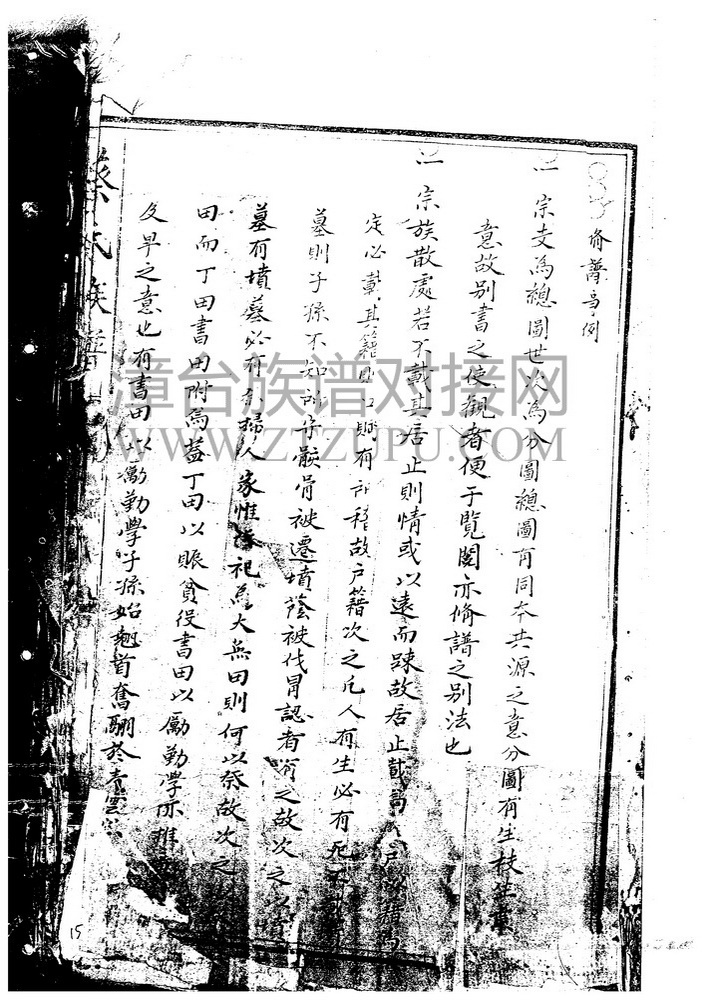 脩譜
例
一 宗支為總圖世次為分圖總圖有同本共源之意分圖有生枝生
意故別書之使觀者便于覽閱亦脩譜之別法也
一 宗族散處若不載其居止則情或以遠而踈故居止載焉 戶以籍
定必載其籍則 有 移故戶籍次之凡人有生必有死
墓則子孫不知所守骸骨被遷墳蔭被伐冒認者有之故次之以墳
墓有墳墓必有祭掃人家惟祭祀為大無田則何以祭故次之
田而丁田書田附焉蓋丁田以賑貧役書田以勵勤學亦推
及早之意也有書田以勵勤學子孫始翹首奮翮於青雲
蔡氏族譜
漳台族谱对接网
WWW.ZTZUPU.COM
15